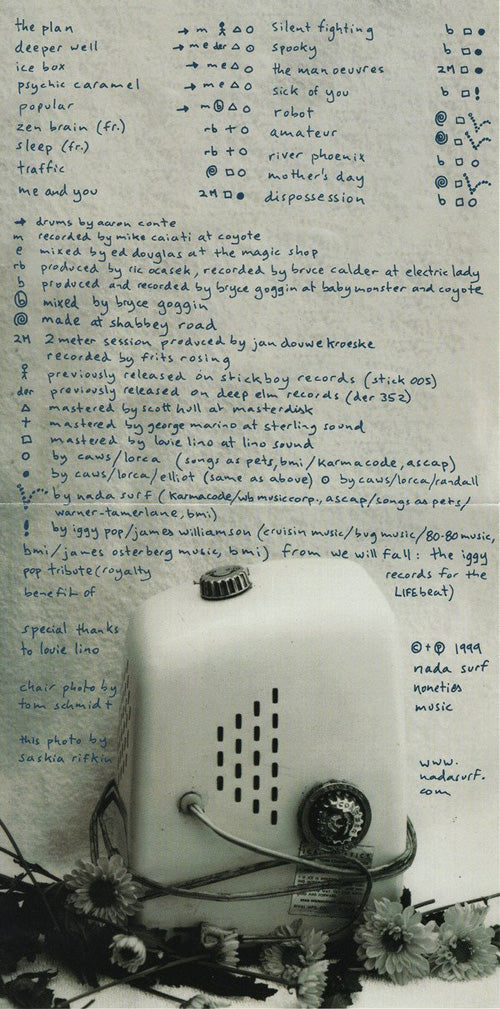 the plan → m 웃 △ ○
deeper well → m e der △ ○
ice box → m e △ ○
psychic caramel → m e △ ○
popular → m ⓑ △ ○
zen brain (fr.) rb + ○
sleep (fr.) rb + ○
traffic @ □ ○
me and you 2M □ ●
silent fighting b □ ●
spooky b □ ●
the manoeuvres 2M □ ●
sick of you b □ !
robot @ □
amateur @ □
river phoenix b □ ○
mother's day @ □
dispossession b □ ○
→ drums by aaron conte
m recorded by mike caiati at coyote
e mixed by ed douglas at the magic shop
rb produced by ric ocasek, recorded by bruce calder at electric lady
b produced and recorded by bryce goggin at baby monster and coyote
ⓑ mixed by bryce goggin
@ made at shabbey road
2M 2 meter session produced by jan douwe kroeske
recorded by frits rosing
웃 previously released on stickboy records (stick 005)
der previously released on deep elm records (der 352)
△ mastered by scott hull at masterdisk
+ mastered by george marino at sterling sound
□ mastered by louie lino at lino sound
○ by caws/lorca (songs as pets, bmi/karmacode, ascap)
● by caws/lorca/elliot (same as above) ⊙ by caws/lorca/randall
by nada surf (karmacode/wb music corp., ascap/songs as pets/
warner-tamerlane, bmi)
! by iggy pop/james williamson (cruisin music/bug music/80-80 music,
bmi/james osterberg music, bmi) from we will fall: the iggy
pop tribute (royalty records for the
benefit of LIFEbeat)
special thanks
to louie lino
chair photo by
tom schmidt
this photo by
saskia rifkin
© + ℗ 1999
nada surf
noneties
music
www.
nadasurf.
com